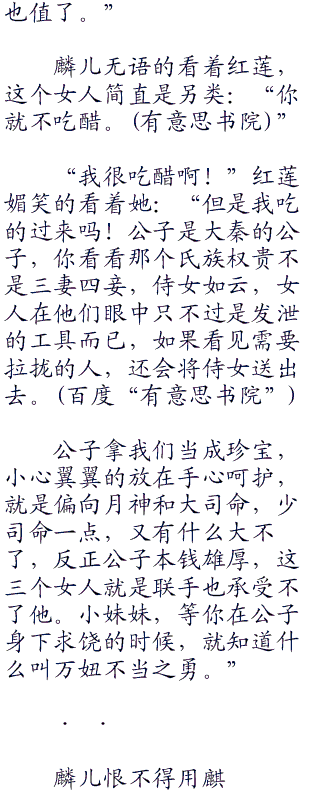 也值了。”
麟儿无语的看着红莲，
这个女人简直是另类：“你
就不吃醋。(有意思书院)”
“我很吃醋啊！”红莲
媚笑的看着她：“但是我吃
的过来吗！公子是大秦的公
子，你看看那个氏族权贵不
是三妻四妾，侍女如云，女
人在他们眼中只不过是发泄
的工具而已，如果看见需要
拉拢的人，还会将侍女送出
去。(百度“有意思书院”)
公子拿我们当成珍宝，
小心翼翼的放在手心呵护，
就是偏向月神和大司命，少
司命一点，又有什么大不
了，反正公子本钱雄厚，这
三个女人就是联手也承受不
了他。小妹妹，等你在公子
身下求饶的时候，就知道什
么叫万妞不当之勇。”
．．
麟儿恨不得用麒